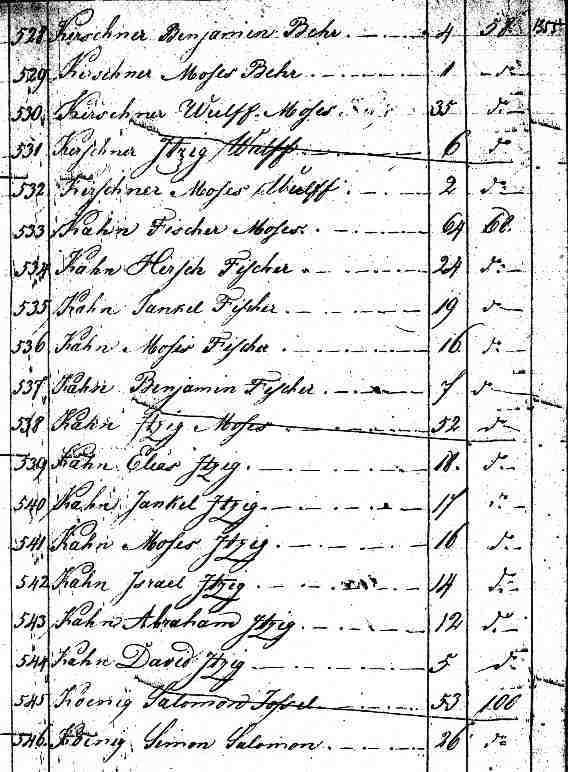 528 Kirschner Benjamin Behr. 4 58 1355
529 Kirschner Moses Behr 1 do
530 Kirschner Wulff Moses 35 do
531 Kirschner Itzig Wulff 6 do
532 Kirschner Moses Wulff. 2 do
533 Kahn Fischer Moses. 64 68.
534 Kahn Hirsch Fischer 24 do
535 Kahn Jankel Fischer 19 do
536 Kahn Moses Fischer 16 do
537 Kahn Benjamin Fischer 7 do
538 Kahn Itzig Moses 52 do
539 Kahn Elias Itzig. 18. do
540 Kahn Jankel Itzig 17 do
541 Kahn Moses Itzig 16 do
542 Kahn Israel Itzig 14 do
543 Kahn Abraham Itzig 12 do
544 Kahn David Itzig 5 do
545 Koenig Salomon Jossel 53 100
546. Koenig Simon Salomon 26 do